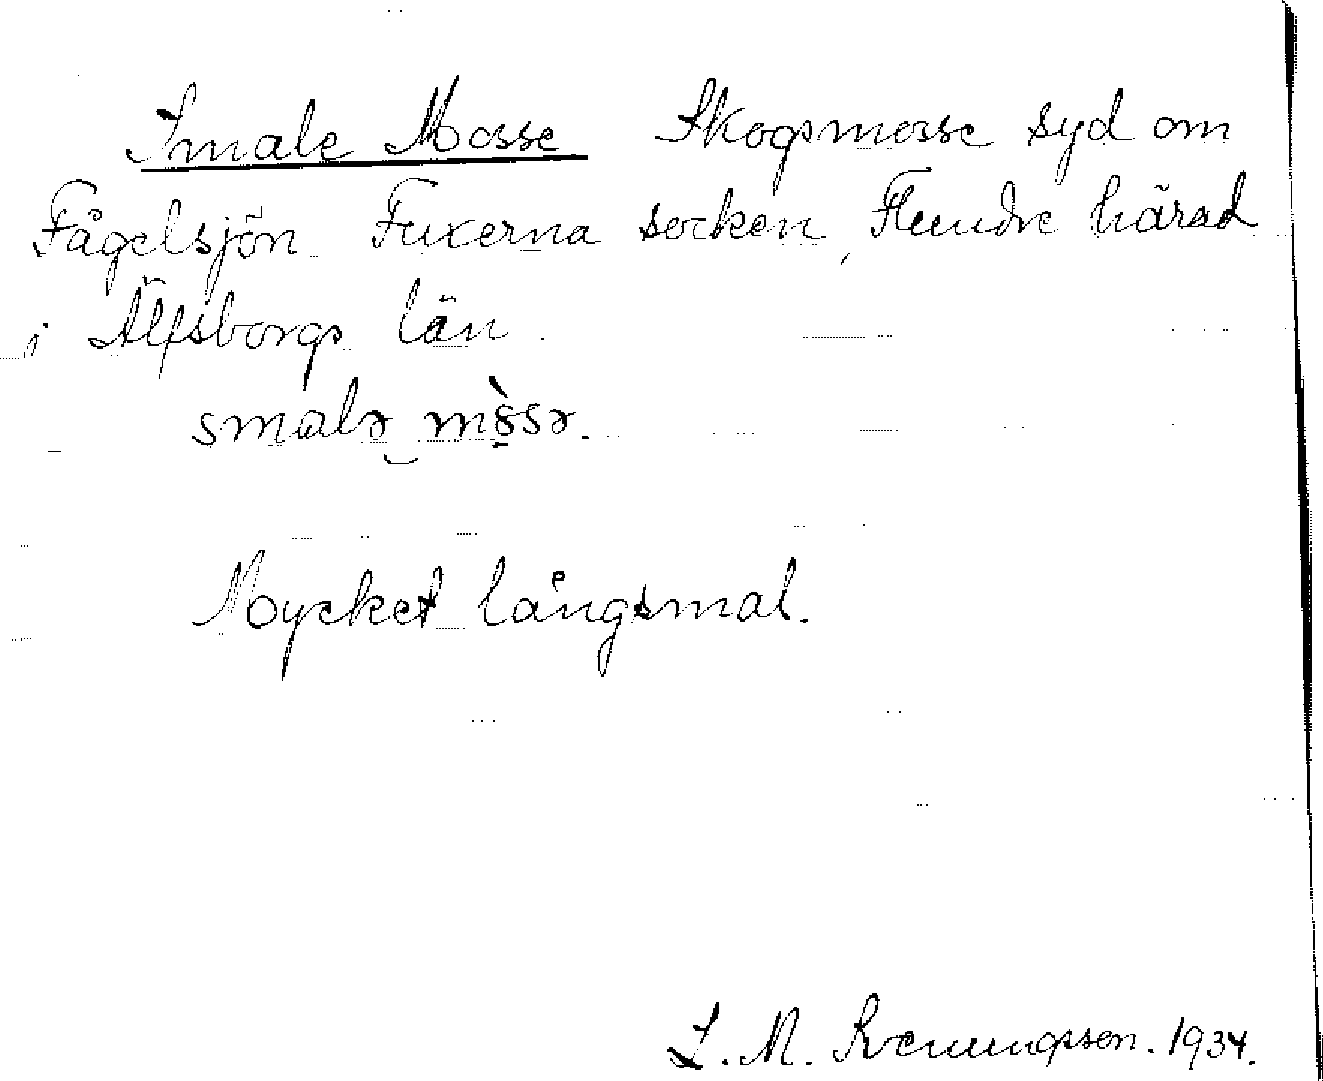 Smale Mosse Skogsmosse syd om
Fågelsjön Fuxerna socken, Flundre härad
i Älfsborgs län.
smalə mòsə.
Mycket långsmal.
S. M. Svenungsson. 1934.